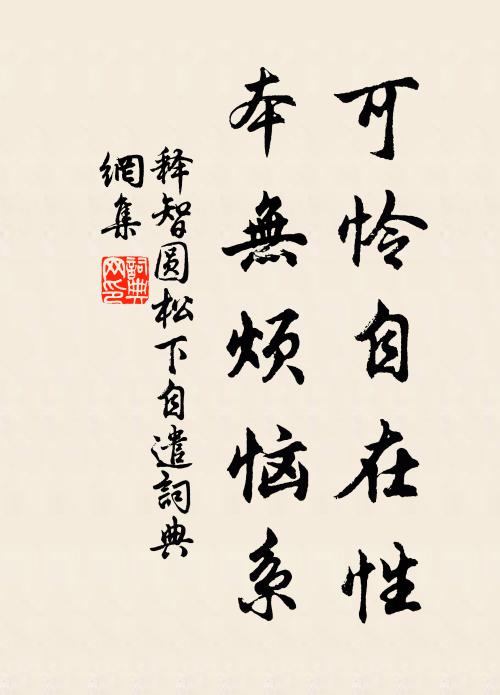 可怜自在性
本無烦恼系
释智圆松下自遣詞典
網集
詞典
网印